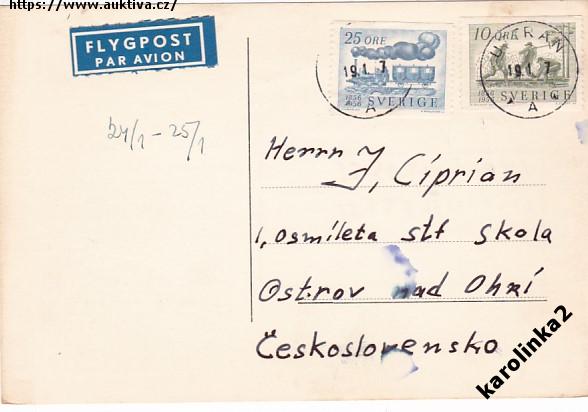 https://www.auktiva.cz/
FLYGPOST
PAR AVION
25 ÖRE
1856
1956
SVERIGE
10 ÖRE
1856
1956
SVERIGE
19.1. 7
A
19.1. 7
A
24/1 - 25/1
Herrn J, Ciprian
1, osmileta stř skola
Ostrov nad Ohří
Československo
karolinka2